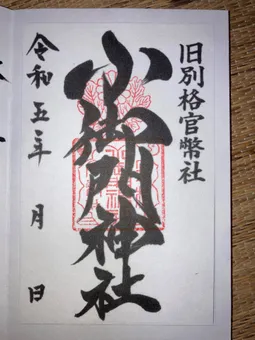 旧別格官幣社
小御門神社
令和五年 月 日